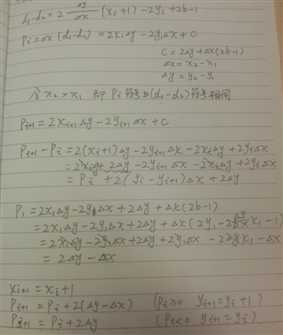 d₁-d₂ = 2 Δy/Δx (xᵢ+1) - 2yᵢ + 2b-1
Pᵢ = Δx(d₁-d₂) = 2xᵢΔy - 2yᵢΔx + C
C = 2Δy + Δx(2b-1)
Δx = x₂-x₁
Δy = y₂-y₁
令 x₂ > x₁ 即 Pᵢ 符号与(d₁-d₂)符号相同
Pᵢ₊₁ = 2xᵢ₊₁Δy - 2yᵢ₊₁Δx + C
Pᵢ₊₁-Pᵢ = 2(xᵢ+1)Δy - 2yᵢ₊₁Δx - 2xᵢΔy + 2yᵢΔx
= 2xᵢΔy + 2Δy - 2yᵢ₊₁Δx - 2xᵢΔy + 2yᵢΔx
= Pᵢ + 2(yᵢ-yᵢ₊₁)Δx + 2Δy
P₁ = 2x₁Δy - 2y₁Δx + 2Δy + Δx(2b-1)
= 2x₁Δy - 2y₁Δx + 2Δy + Δx(2y₁ - 2Δy/Δx x₁ - 1)
= 2x₁Δy - 2y₁Δx + 2Δy + 2y₁Δx - 2Δyx₁ - Δx
= 2Δy - Δx
xᵢ₊₁ = xᵢ+1
Pᵢ₊₁ = Pᵢ + 2(Δy-Δx) (Pᵢ≥0 yᵢ₊₁=yᵢ+1)
Pᵢ₊₁ = Pᵢ + 2Δy (Pᵢ<0 yᵢ₊₁=yᵢ)